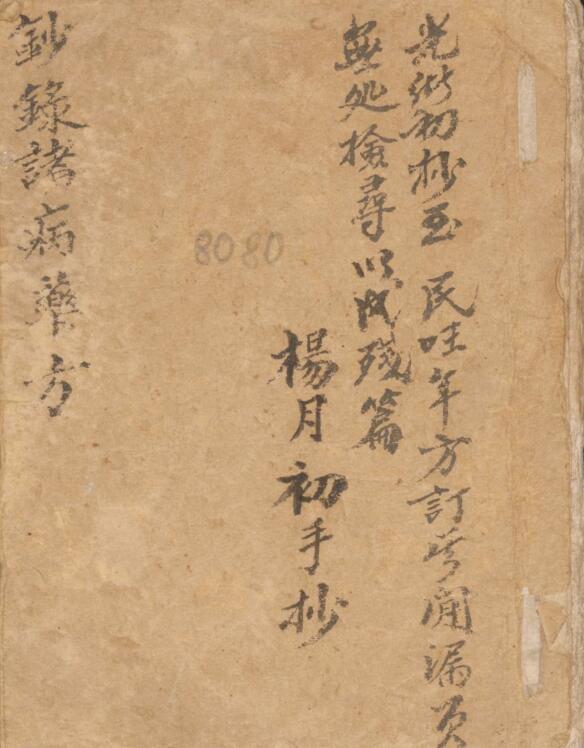 光初抄至 民年方訂漏页
無処檢尋以成残篇
楊月初手抄
8080
鈔錄諸病藥方